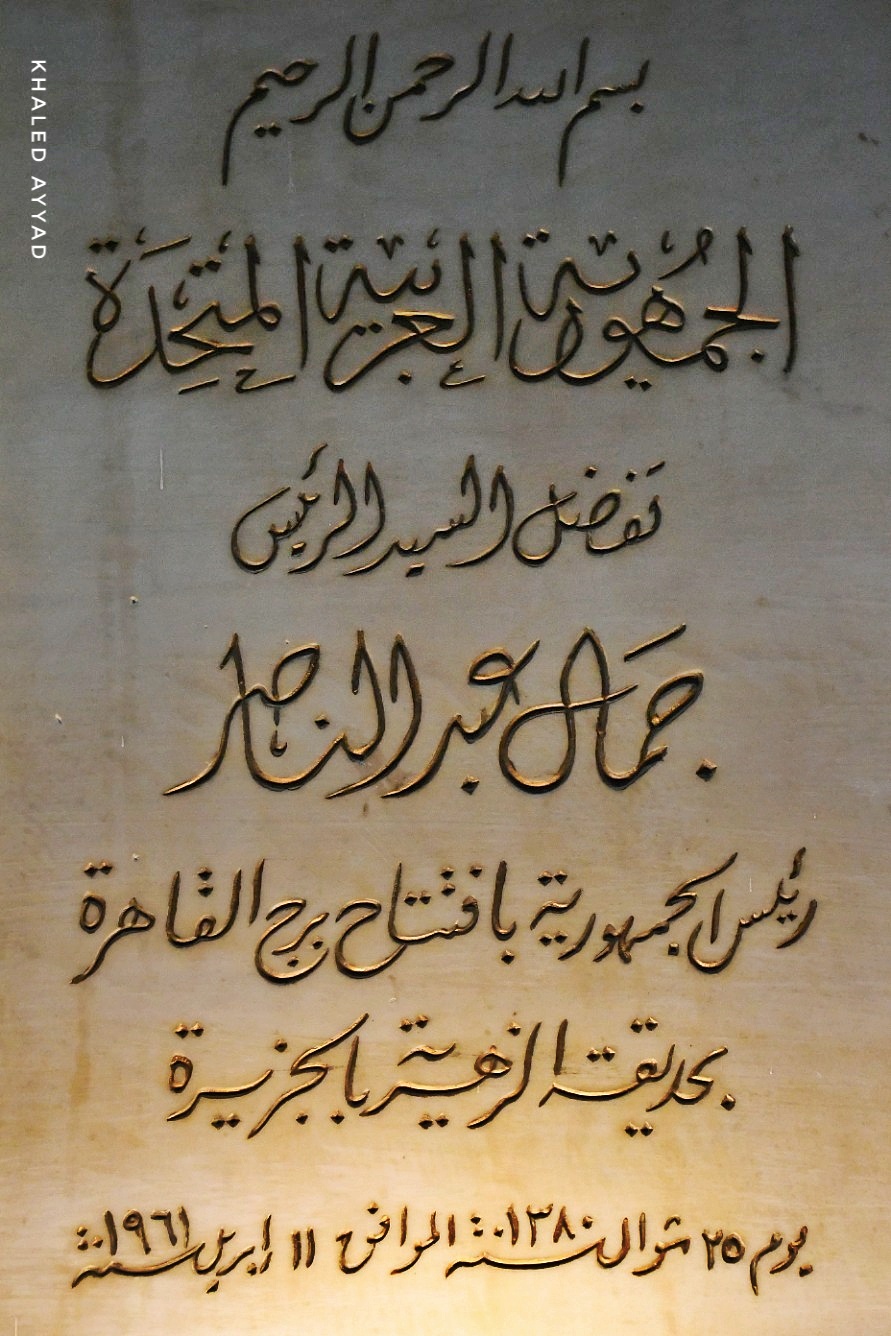 KHALED AYYAD
بسم الله الرحمن الرحيم
الجُمهورية العربية المتحِدَة
تفضل السيد الرئيس
جمال عبد الناصر
رئيس الجمهورية بافتتاح برج القاهرة
بحديقة الزهرية بالجزيرة
يوم ٢٥ شوال سنة ١٣٨٠ الموافق ١١ ابريل سنة ١٩٦١